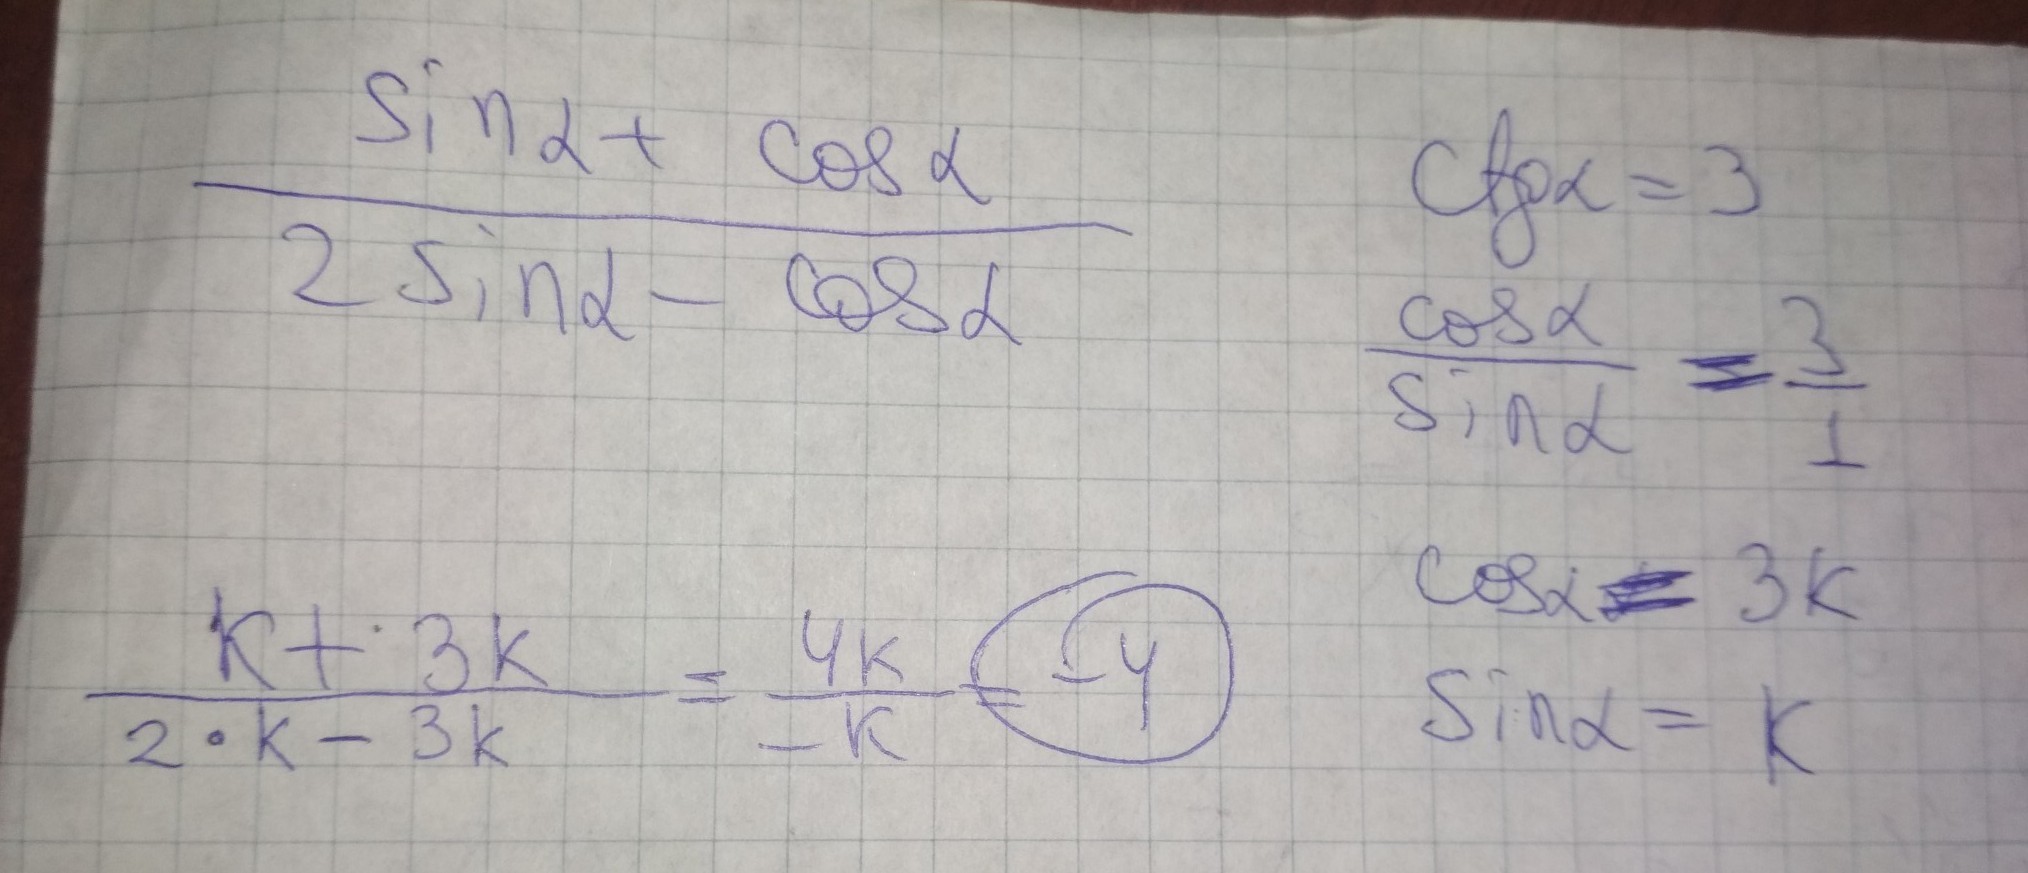 sinα + cosα
2 sinα - cosα
ctgα = 3
cosα = 3
sinα 1
cosα = 3k
sinα = k
k + 3k = 4k = -4
2 • k - 3k -k